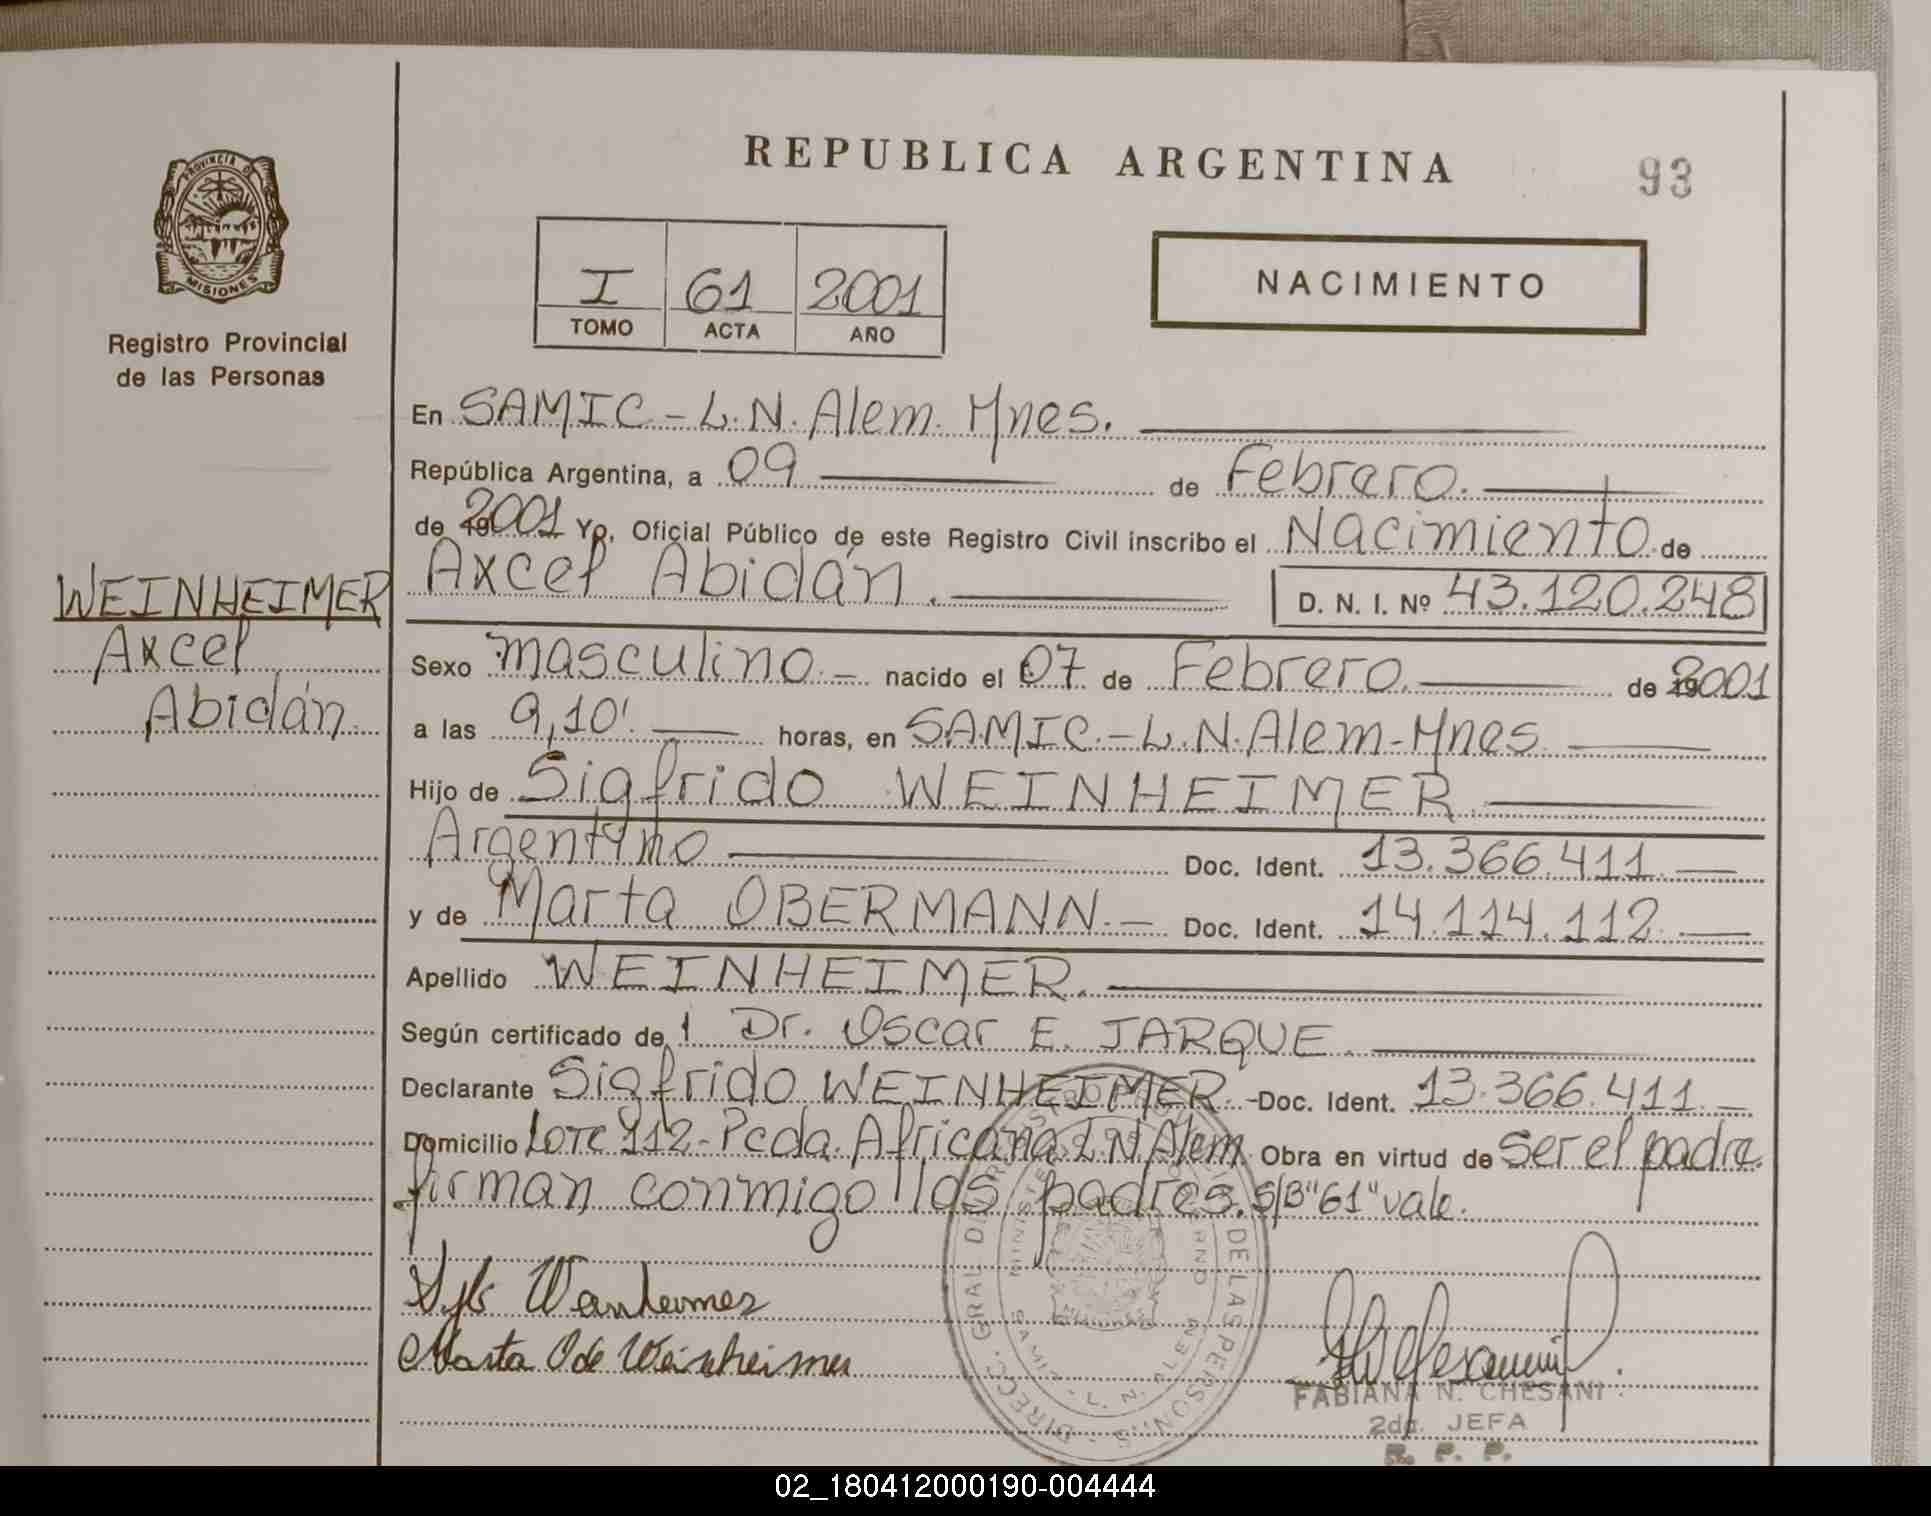 REPUBLICA ARGENTINA
93
PROVINCIA DE
MISIONES
Registro Provincial
de las Personas
I 61 2001
TOMO ACTA AÑO
NACIMIENTO
En SAMIC - L.N. Alem. Mnes.
República Argentina, a 09 de Febrero.
de 2001 Yo, Oficial Público de este Registro Civil inscribo el Nacimiento de
Axcel Abidán.
D. N. I. Nº 43.120.248
WEINHEIMER
Axcel
Abidán.
Sexo masculino.- nacido el 07 de Febrero. de 2001
a las 9,10' horas, en SAMIC.-L.N. Alem-Mnes
Hijo de Sigfrido WEINHEIMER.
Argentino Doc. Ident. 13.366.411.
y de Marta OBERMANN.- Doc. Ident. 14.114.112.
Apellido WEINHEIMER.
Según certificado de Dr. Oscar E. JARQUE.
Declarante Sigfrido WEINHEIMER. -Doc. Ident. 13.366.411.
Domicilio Lote 112-Pcda. Africana L N Alem. Obra en virtud de ser el padre.
firman conmigo los padres. S/B "61" vale.
Weinheimer
Marta O de Weinheimer
DIRECC. GRAL DEL REGISTRO DE LAS PERSONAS
SAMIC - L. N. ALEM
FABIANA N. CHESANI
2da. JEFA
R. P. P.
02_180412000190-004444